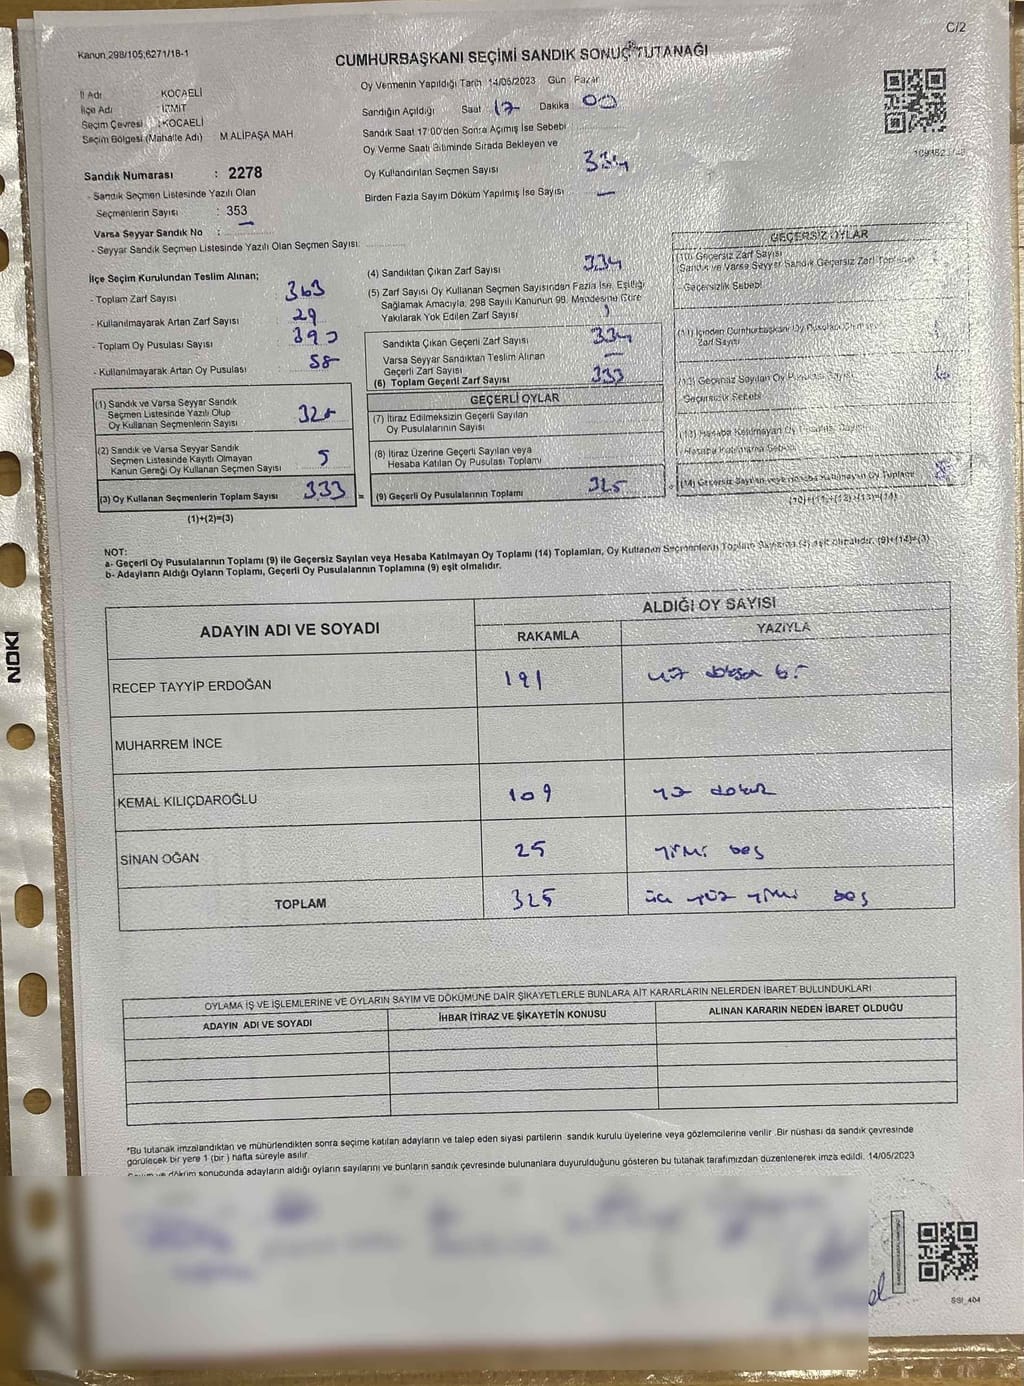 C/2
Kanun 298/105;6271/18-1
CUMHURBAŞKANI SEÇİMİ SANDIK SONUÇ TUTANAĞI
İl Adı : KOCAELİ
İlçe Adı : İZMİT
Seçim Çevresi : KOCAELİ
Seçim Bölgesi (Mahalle Adı) M ALİPAŞA MAH
Sandık Numarası : 2278
- Sandık Seçmen Listesinde Yazılı Olan
Seçmenlerin Sayısı : 353
Varsa Seyyar Sandık No : —
- Seyyar Sandık Seçmen Listesinde Yazılı Olan Seçmen Sayısı:
Oy Vermenin Yapıldığı Tarih 14/05/2023 Gün Pazar
Sandığın Açıldığı Saat : 17 Dakika 00
Sandık Saat 17:00'den Sonra Açımış İse Sebebi
Oy Verme Saati Bitiminde Sırada Bekleyen ve
Oy Kullandırılan Seçmen Sayısı 334
Birden Fazla Sayım Döküm Yapılmış İse Sayısı —
İlçe Seçim Kurulundan Teslim Alınan;
- Toplam Zarf Sayısı 363
- Kullanılmayarak Artan Zarf Sayısı 29
- Toplam Oy Pusulası Sayısı
- Kullanılmayarak Artan Oy Pusulası 58
(1) Sandık ve Varsa Seyyar Sandık
Seçmen Listesinde Yazılı Olup
Oy Kullanan Seçmenlerin Sayısı
(2) Sandık ve Varsa Seyyar Sandık
Seçmen Listesinde Kayıtlı Olmayan
Kanun Gereği Oy Kullanan Seçmen Sayısı 5
(3) Oy Kullanan Seçmenlerin Toplam Sayısı 333 =
(1)+(2)=(3)
(4) Sandıktan Çıkan Zarf Sayısı 334
(5) Zarf Sayısı Oy Kullanan Seçmen Sayısından Fazla İse, Eşitliği
Sağlamak Amacıyla, 298 Sayılı Kanunun 98. Maddesine Göre
Yakılarak Yok Edilen Zarf Sayısı 1
Sandıkta Çıkan Geçerli Zarf Sayısı 334
Varsa Seyyar Sandıktan Teslim Alınan
Geçerli Zarf Sayısı —
(6) Toplam Geçerli Zarf Sayısı 333
GEÇERLİ OYLAR
(7) İtiraz Edilmeksizin Geçerli Sayılan
Oy Pusulalarının Sayısı
(8) İtiraz Üzerine Geçerli Sayılan veya
Hesaba Katılan Oy Pusulası Toplamı
(9) Geçerli Oy Pusulalarının Toplamı 325
GEÇERSİZ OYLAR
(10) Geçersiz Zarf Sayısı
(Sandık ve Varsa Seyyar Sandık Geçersiz Zarf Toplamı)
Geçersizlik Sebebi
Zarf Sayısı
Geçersizlik Sebebi
(14) Geçersiz Sayılan veya Hesaba Katılmayan Oy Toplamı
(10)+(11)+(12)+(13)=(14)
NOT:
a- Geçerli Oy Pusulalarının Toplamı (9) ile Geçersiz Sayılan veya Hesaba Katılmayan Oy Toplamı (14) Toplamları, Oy Kullanan Seçmenlerin Toplam Sayısına (3) eşit olmalıdır. (9)+(14)=(3)
b- Adayların Aldığı Oyların Toplamı, Geçerli Oy Pusulalarının Toplamına (9) eşit olmalıdır.
ADAYIN ADI VE SOYADI ALDIĞI OY SAYISI
RAKAMLA YAZIYLA
RECEP TAYYİP ERDOĞAN 191 yüz doksan bir
MUHARREM İNCE
KEMAL KILIÇDAROĞLU 109 yüz dokuz
SİNAN OĞAN 25 yirmi beş
TOPLAM 325 üç yüz yirmi beş
OYLAMA İŞ VE İŞLEMLERİNE VE OYLARIN SAYIM VE DÖKÜMÜNE DAİR ŞİKAYETLERLE BUNLARA AİT KARARLARIN NELERDEN İBARET BULUNDUKLARI
ADAYIN ADI VE SOYADI İHBAR İTİRAZ VE ŞİKAYETİN KONUSU ALINAN KARARIN NEDEN İBARET OLDUĞU
*Bu tutanak imzalandıktan ve mühürlendikten sonra seçime katılan adayların ve talep eden siyasi partilerin sandık kurulu üyelerine veya gözlemcilerine verilir .Bir nüshası da sandık çevresinde
görülecek bir yere 1 (bir ) hafta süreyle asılır.
sonucunda adayların aldığı oyların sayılarını ve bunların sandık çevresinde bulunanlara duyurulduğunu gösteren bu tutanak tarafımızdan düzenlenerek imza edildi. 14/05/2023
SSI_404
NOKI